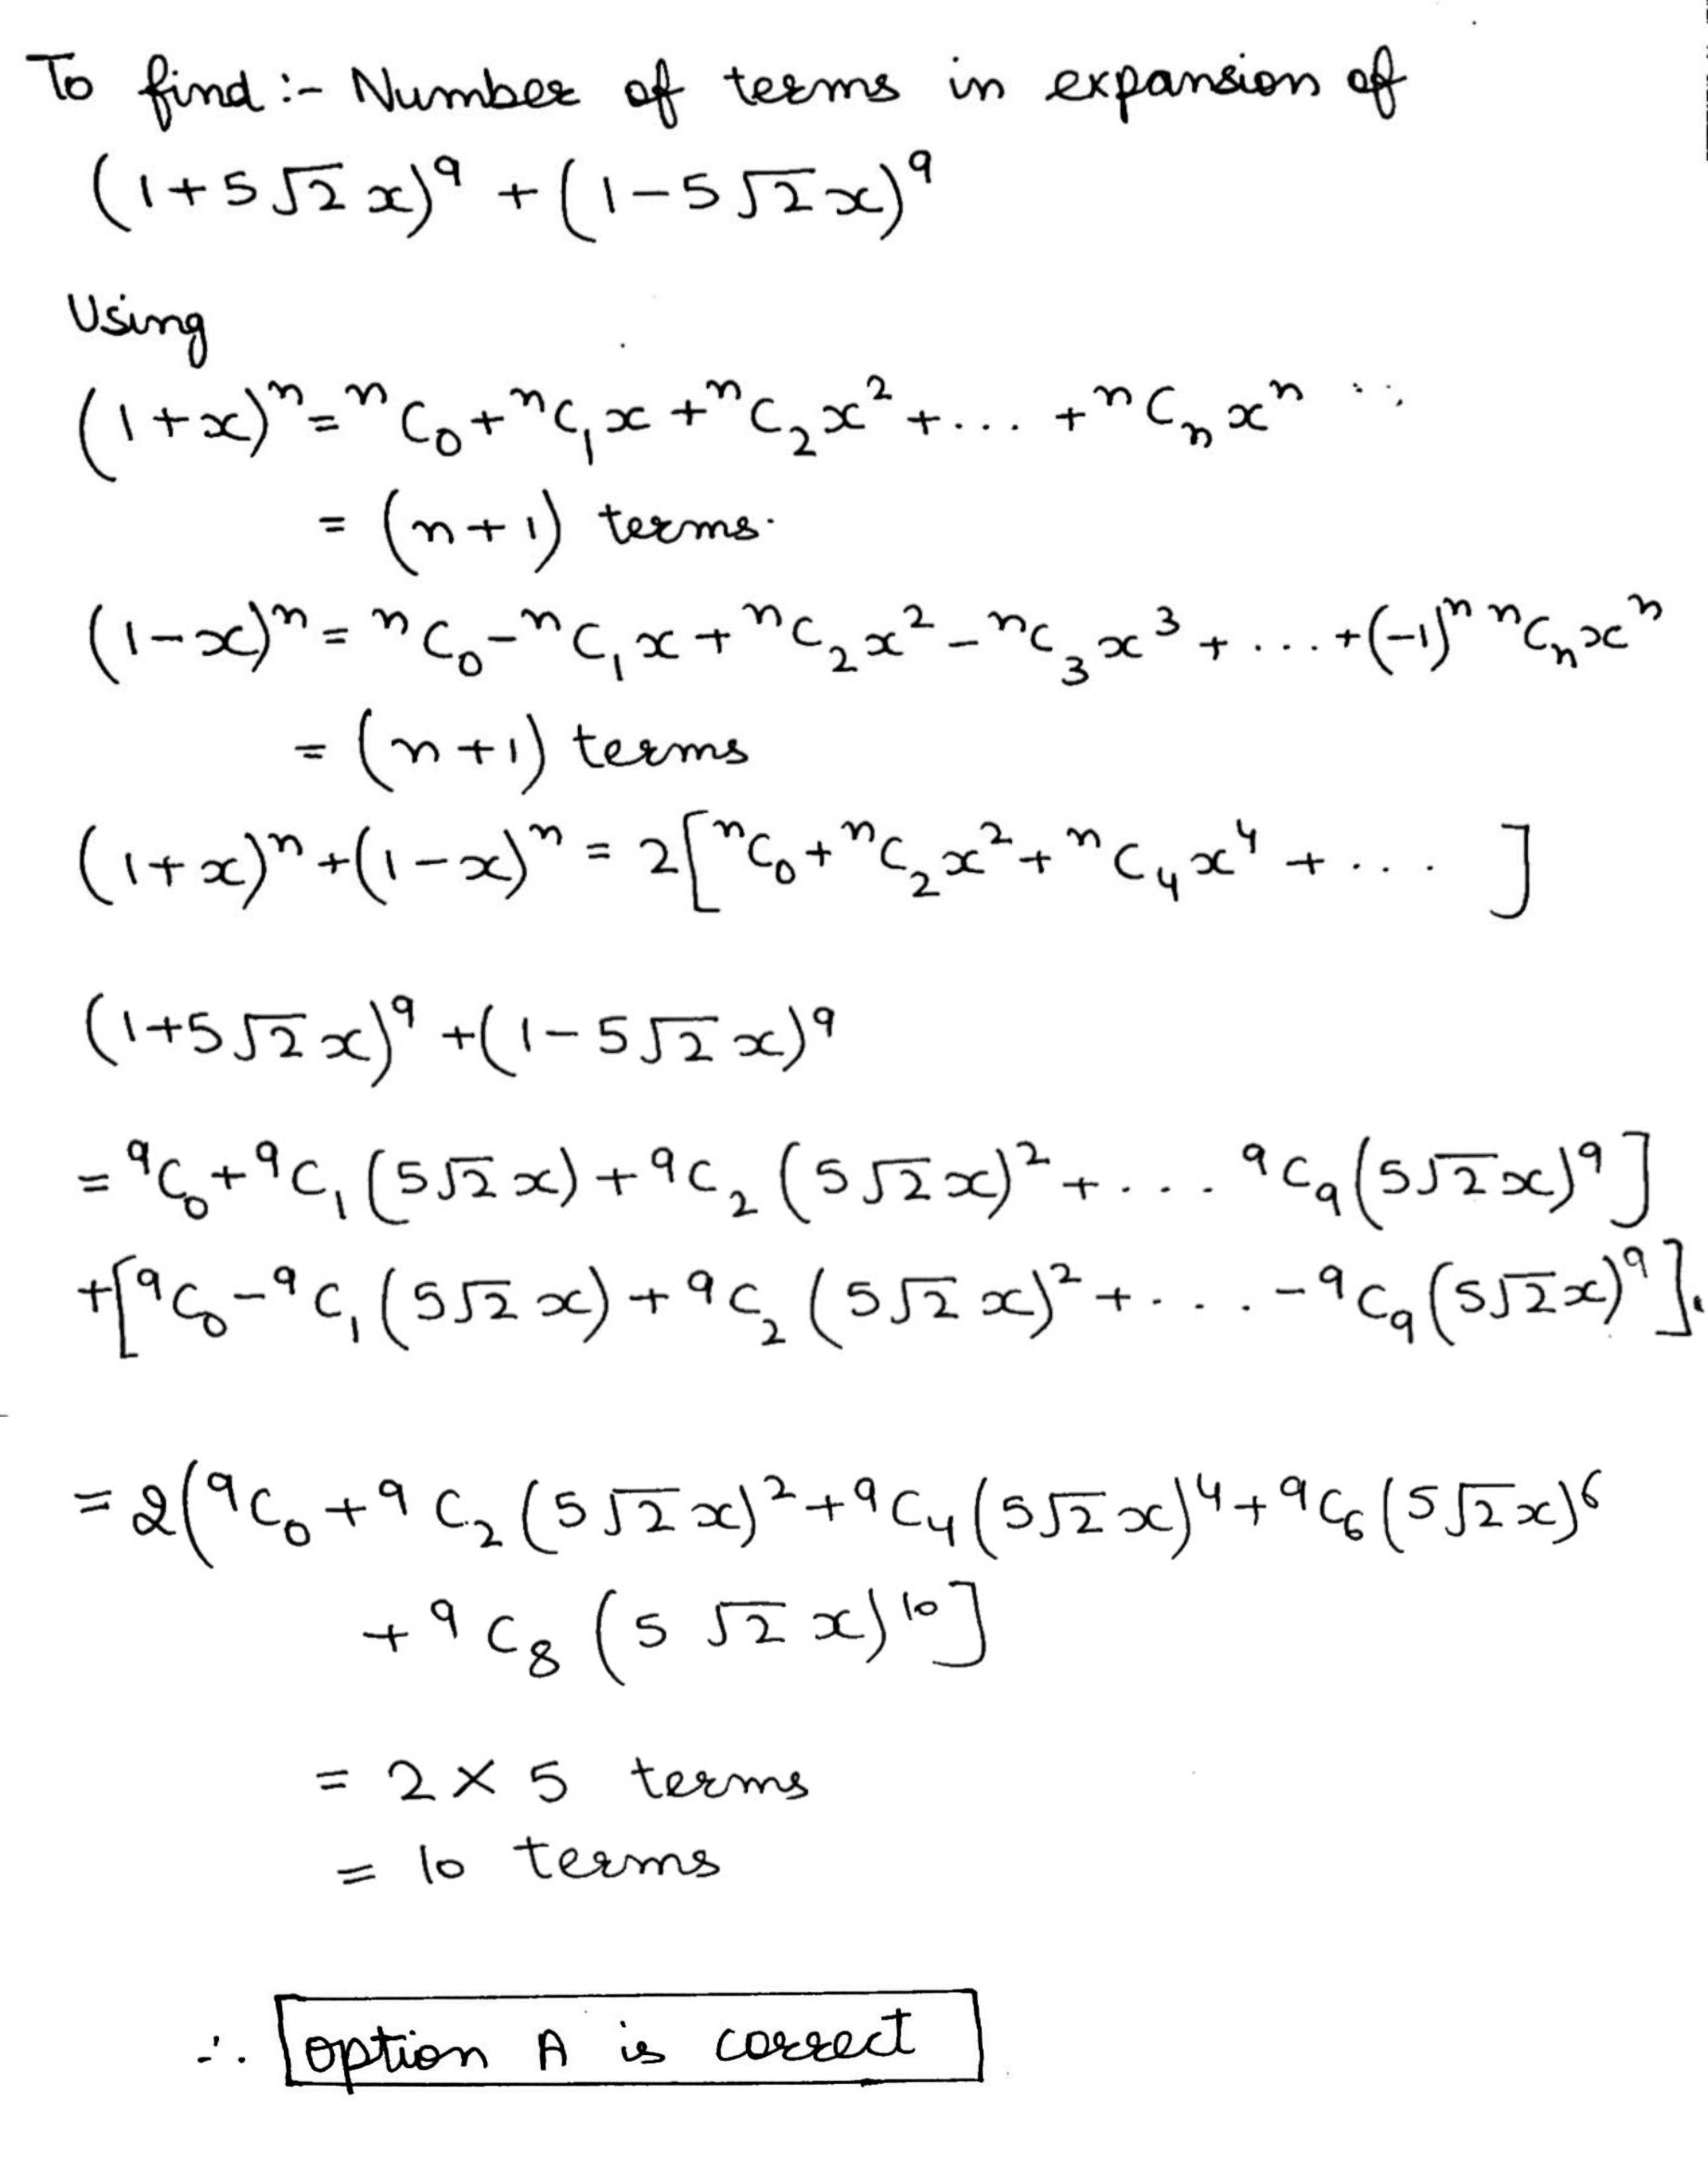 To find :- Number of terms in expansion of
(1+5√2 x)⁹ + (1-5√2 x)⁹
Using
(1+x)ⁿ = ⁿC₀ + ⁿC₁x + ⁿC₂x² + ... + ⁿCₙxⁿ
= (n+1) terms.
(1-x)ⁿ = ⁿC₀ - ⁿC₁x + ⁿC₂x² - ⁿC₃x³ + .... + (-1)ⁿ ⁿCₙxⁿ
= (n+1) terms
(1+x)ⁿ + (1-x)ⁿ = 2[ⁿC₀ + ⁿC₂x² + ⁿC₄x⁴ + ... ]
(1+5√2 x)⁹ + (1-5√2 x)⁹
= ⁹C₀ + ⁹C₁(5√2 x) + ⁹C₂(5√2 x)² + .... ⁹C₉(5√2 x)⁹]
+[⁹C₀ - ⁹C₁(5√2 x) + ⁹C₂(5√2 x)² + .... - ⁹C₉(5√2 x)⁹].
= 2(⁹C₀ + ⁹C₂(5√2 x)² + ⁹C₄(5√2 x)⁴ + ⁹C₆(5√2 x)⁶
+ ⁹C₈(5√2 x)¹⁰]
= 2 × 5 terms
= 10 terms
∴ option A is correct